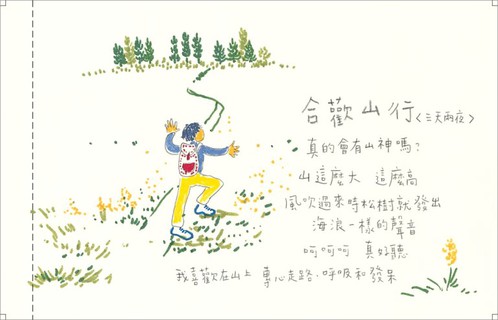 合歡山行〈三天兩夜〉
真的會有山神嗎?
山這麼大 這麼高
風吹過來時松樹就發出
海浪一樣的聲音
呵呵呵 真好聽
我喜歡在山上 專心走路、呼吸和發呆